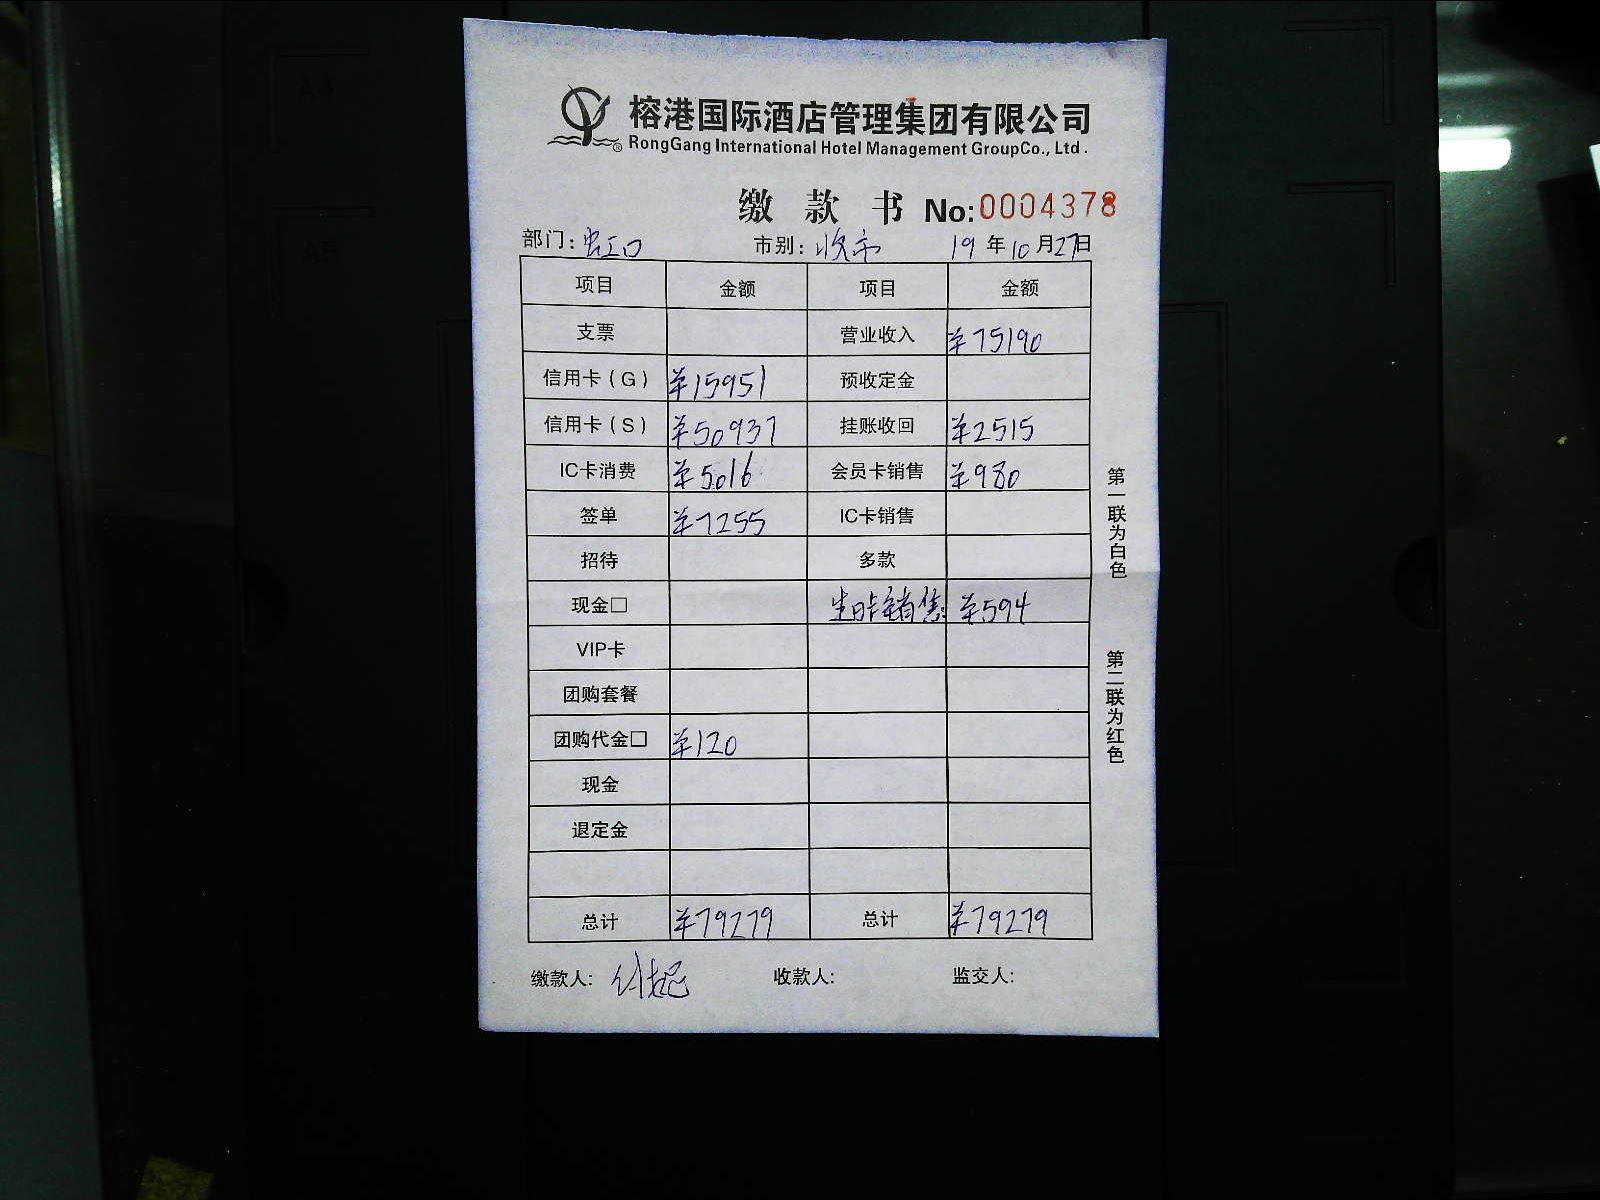 榕港国际酒店管理集团有限公司
® RongGang International Hotel Management GroupCo., Ltd.
缴款书 No:0004378
部门:虹口 市别:收市 19年10月27日
项目 金额 项目 金额
支票 营业收入 ¥75190
信用卡(G) ¥15951 预收定金
信用卡(S) ¥50937 挂账收回 ¥2515
IC卡消费 ¥5016 会员卡销售 ¥980
签单 ¥7255 IC卡销售
招待 多款
现金□ 生日卡销售 ¥594
VIP卡
团购套餐
团购代金□ ¥120
现金
退定金
总计 ¥79279 总计 ¥79279
缴款人: 收款人: 监交人:
第一联为白色
第二联为红色
A4
A5